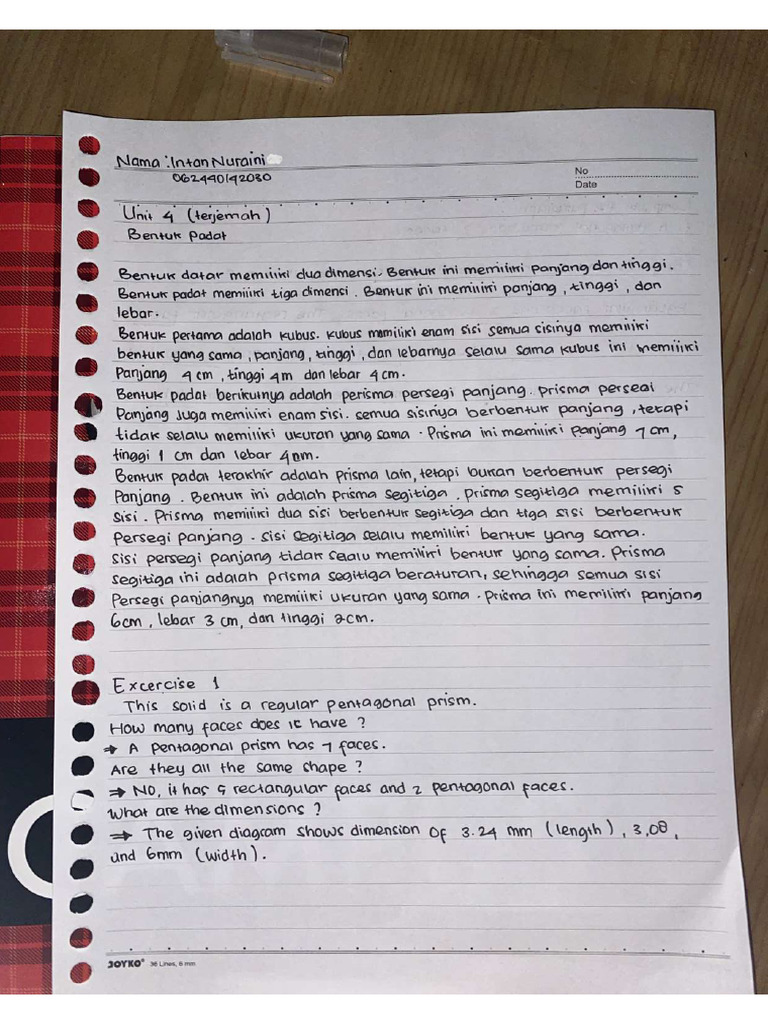 Nama : Intan Nuraini
062440142030
No
Date
Unit 4 (terjemah)
Bentuk Padat
Bentuk datar memiliki dua dimensi. Bentuk ini memiliki panjang dan tinggi.
Bentuk padat memiliki tiga dimensi. Bentuk ini memiliki panjang, tinggi, dan
lebar.
Bentuk pertama adalah kubus. Kubus memiliki enam sisi semua sisinya memiliki
bentuk yang sama, panjang, tinggi, dan lebarnya selalu sama kubus ini memiliki
Panjang 4 cm, tinggi 4m dan lebar 4 cm.
Bentuk padat berikutnya adalah perisma persegi panjang. prisma persegi
Panjang Juga memiliki enam sisi. semua sisinya berbentuk panjang, tetapi
tidak selalu memiliki ukuran yang sama. Prisma ini memiliki panjang 7 cm,
tinggi 1 cm dan lebar 4nm.
Bentuk padat terakhir adalah prisma lain, tetapi bukan berbentuk persegi
Panjang. Bentuk ini adalah prisma segitiga. prisma segitiga memiliki 5
sisi. Prisma memiliki dua sisi berbentuk segitiga dan tiga sisi berbentuk
Persegi panjang. sisi segitiga selalu memiliki bentuk yang sama.
Sisi persegi panjang tidak selalu memiliki bentuk yang sama. Prisma
segitiga ini adalah prisma segitiga beraturan, sehingga semua sisi
Persegi panjangnya memiliki ukuran yang sama. prisma ini memiliki panjang
6cm, lebar 3 cm, dan tinggi 2cm.
Excercise 1
This solid is a regular pentagonal prism.
How many faces does it have?
→ A pentagonal prism has 7 faces.
Are they all the same shape?
→ No, it has 5 rectangular faces and 2 pentagonal faces.
What are the dimensions?
→ The given diagram shows dimension of 3.24 mm (length), 3,08,
and 6mm (width).
JOYKO® 36 Lines, 6 mm